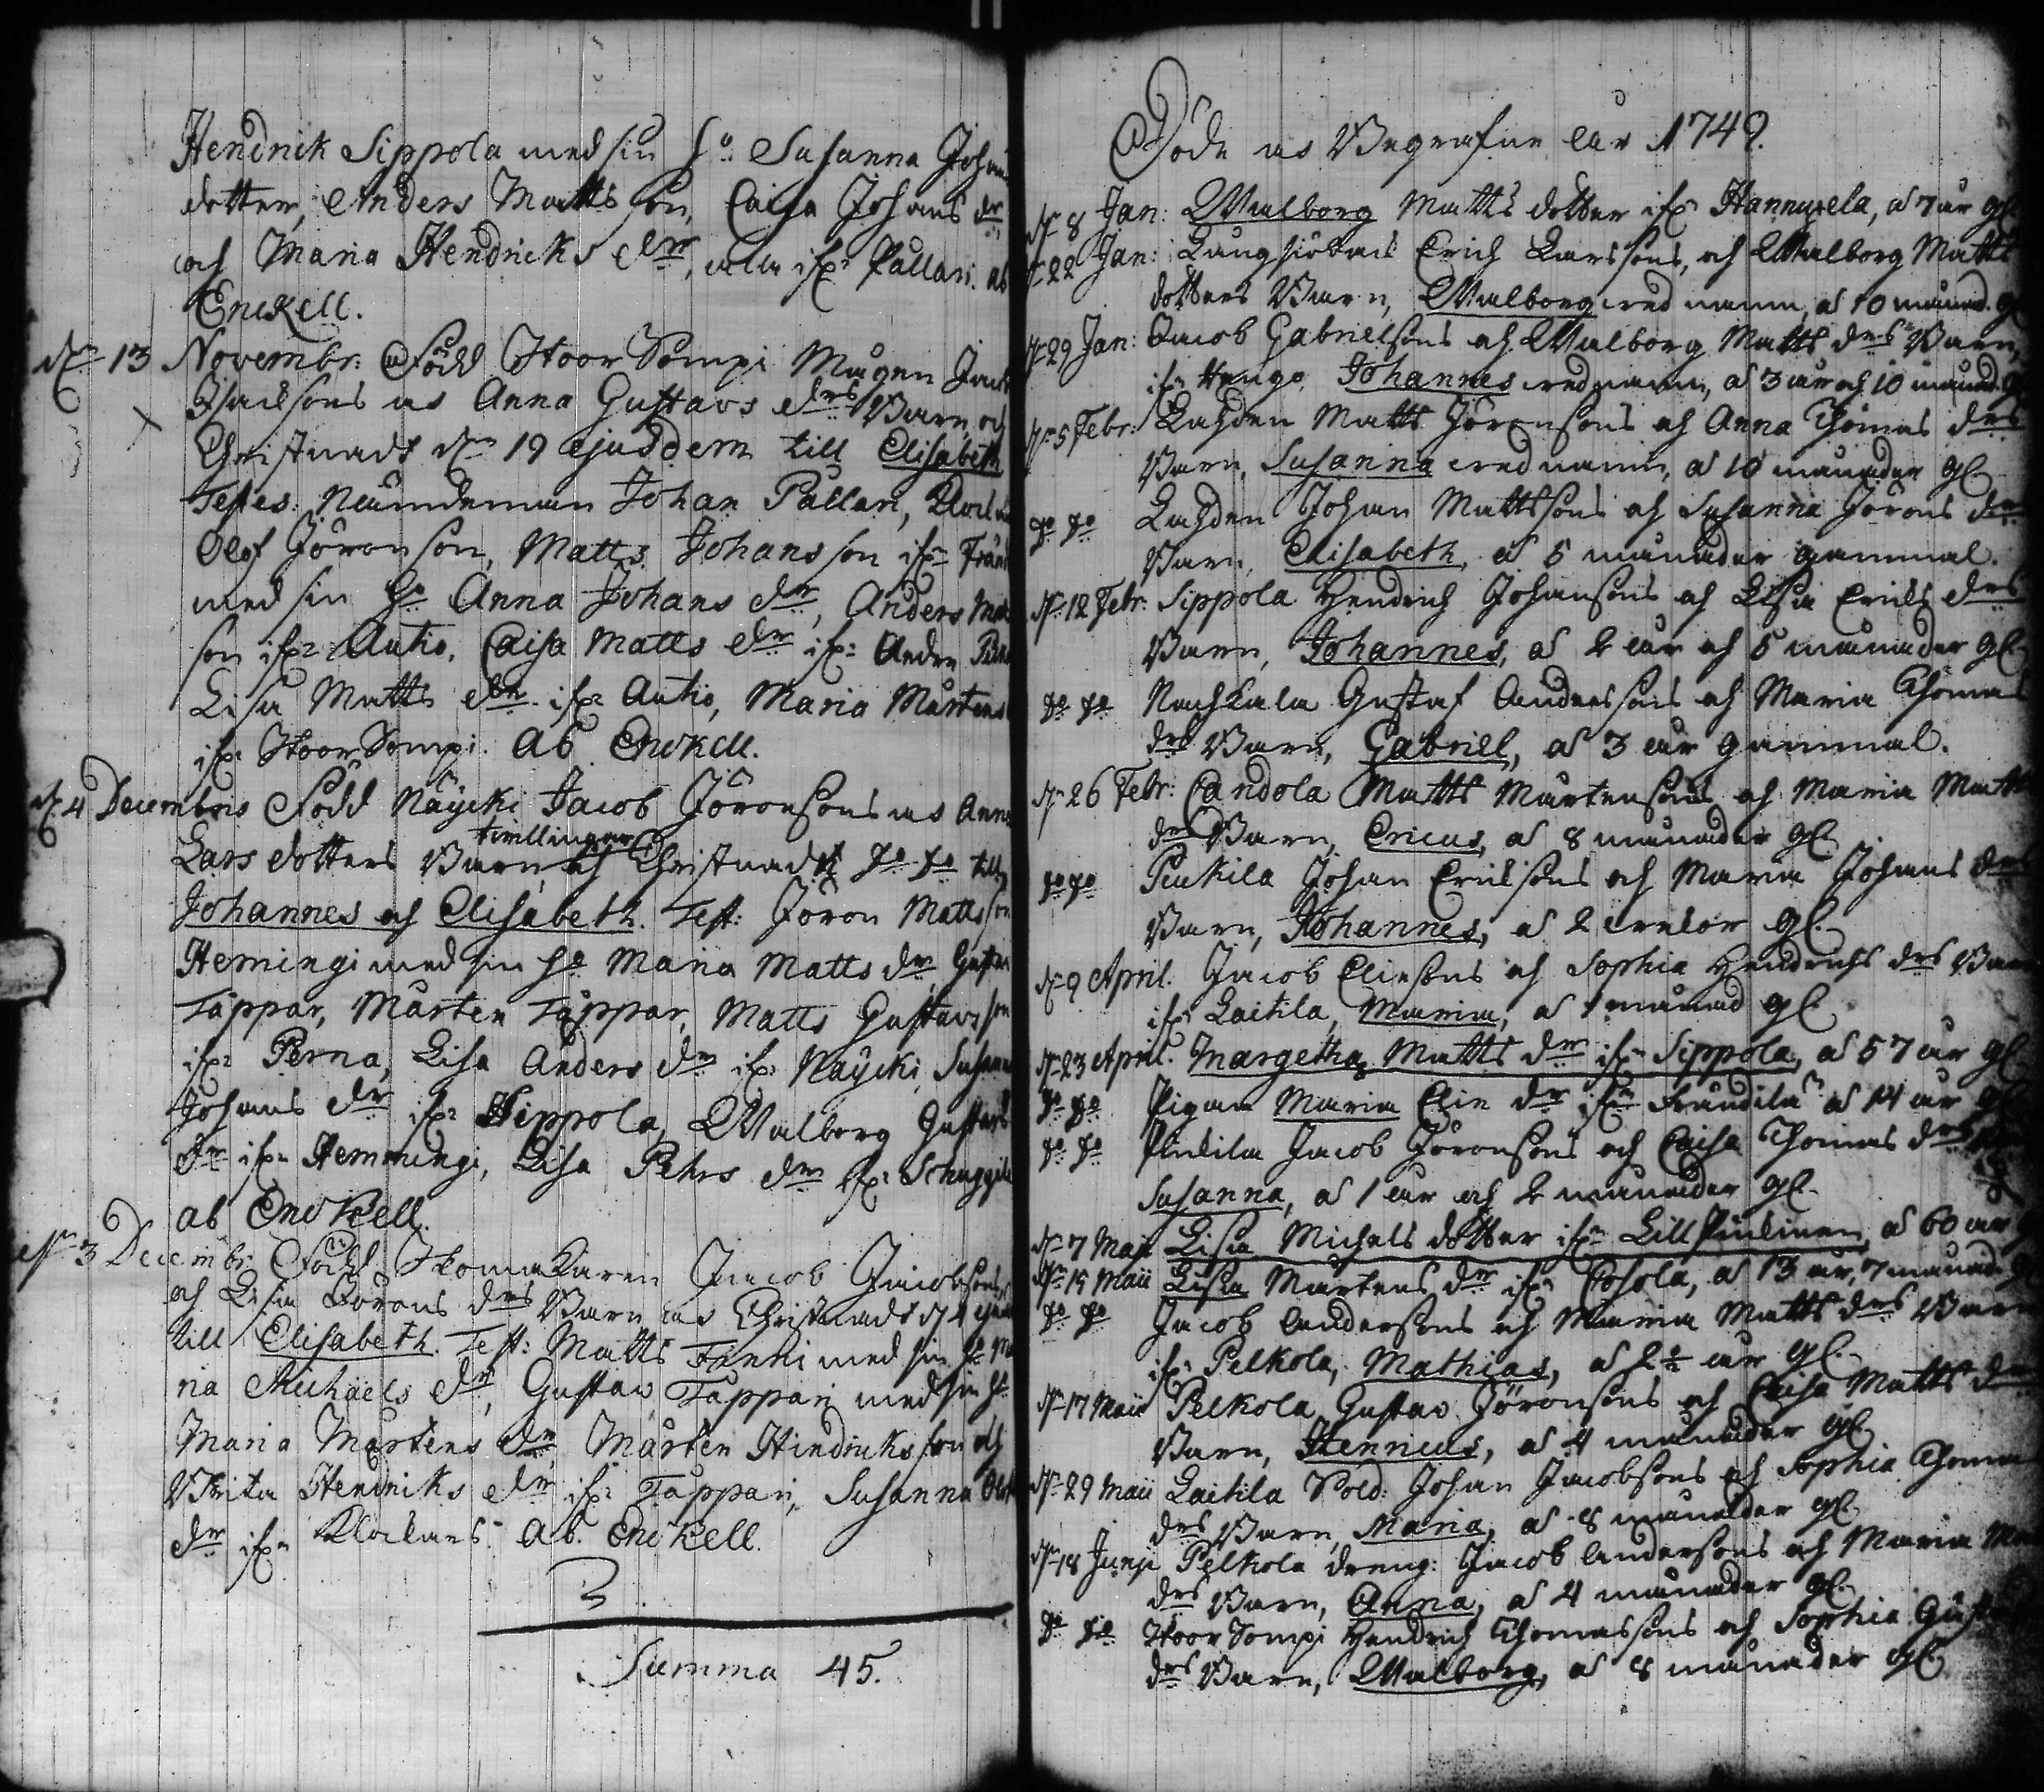 Hendrik Sippola med sin h:o Susanna Johans
dotter, Anders Mattsson, Caisa Johans dr
och Maria Hendricks dr, alla ifr: Pållari. ab
Enckell.
dn 13 Novembr. Född Stoor Sompi Mågen Jacob
Isacsons as Anna Gustavs drs Barn, och
Christnadt dn 19 ejusdem till Elisabeth
Testes: Nämndeman Johan Pällari,
Olof Jöronson, Matts Johansson ifr
med sin ho Anna Johans dr, Anders
son ifr: Autio, Caisa Matts dr ifr:
Lisa Matts dr ifr Autio, Maria Mårtens
ifr Stoor Sompi. Ab Enckell.
d. 4 Decembris Född Näycki Jacob Jöronsons as Anna
twillingar
Lars dotters Barn, och Christnadt do do till
Johannes och Elisabeth. Test: Jöron Mattsson
Hemingi med sin ho Maria Matts dr,
Täppar, Mårten Täppar, Matts Gustavsson
ifr: Perna, Lisa Anders dr ifr: Näycki, Susanna
Johans dr ifr: Sippola, Walborg Gustavs
dr ifr Hemmingi, Lisa Pehrs dr ifr:
ab Enckell.
dn 3 Decembr. Född Jacob Jacobsons
och Lisa Görans drs Barn as Christnadt d 4
till Elisabeth. Test: Matts Fanni med sin ho Ma
ria Michaels dr, Gustav Täppari med sin ho
Maria Mårtens dr, Mårten Hindricksson och
Brita Hendriks dr ifr: Täppari, Susanna
dr ifr Klockars. Ab. Enckell.
Summa 45.
Döde as Begrafne åhr 1749.
dn 8 Jan: Walborg Matts dotter ifr Hannuxela, à 7 åhr gl.
dn 22 Jan: Erich Larssons, och Walborg Matts
dotters Barn, Walborg wed namn, à 10 månad. gl
dn 29 Jan: Jacob Gabrielsons och Walborg Matts drs Barn,
ifr Johannes wed namn, à 3 åhr och 10 månad. gl
dn 5 Febr: Lahden Matts Jöronsons och Anna Thomas drs
Barn, Susanna wed namn, à 10 månader gl
do do Lahden Johan Mattssons och Susanna Jörons drs
Barn, Elisabeth, à 5 månader gammal.
dn 12 Febr: Sippola Hendrich Johansons och Lisa Erichs drs
Barn, Johannes, à 2 åhr och 5 månader gl.
do do Gustaf Anderssons och Maria Thomas
drs Barn, Gabriel, à 3 åhr gammal.
dn 26 Febr: Candola Matts Mårtensons och Maria Matts
drs Barn, Ericus, à 8 månader gl
do do Penkila Johan Erichsons och Maria Johans drs
Barn, Johannes, à 2 gl.
dn 9 April. Jacob Eliesons och Sophia Hendrichs drs Barn
ifr Laitila, Maria, à 1 månad gl
dn 23 April. Margetha Matts dr ifr Sippola, à 57 åhr gl
do do Pigan Maria Elie dr ifr Frändilä à 14 åhr gl
do do Jacob Jöronsons och Caisa Thomas drs
Susanna, à 1 åhr och 2 månader gl.
dn 7 Maji Lisa Michels dotter ifr Lill à 60 åhr
dn 15 Maii Lisa Mårtens dr ifr Cosola, à 13 åhr, 7 månad.
do do Jacob Andersons och Maria Matts drs Barn
ifr Pelkola, Mathias, à 2½ åhr gl.
dn 17 Maii Pelkola Gustav Jöronsons och Caisa Matts drs
Barn, Henricus, à 4 månader gl
dn 29 Maii Laitila Sold: Johan Jacobsons och Sophia Thomas
drs Barn, Maria, à 8 månader gl
dn 18 Junji Pelkola dreng: Jacob Andersons och Maria
drs Barn, Anna, à 4 månader gl.
do do Stoor Sompi Hendrich Thomassons och Sophia
drs Barn, Walborg, à 8 månader gl